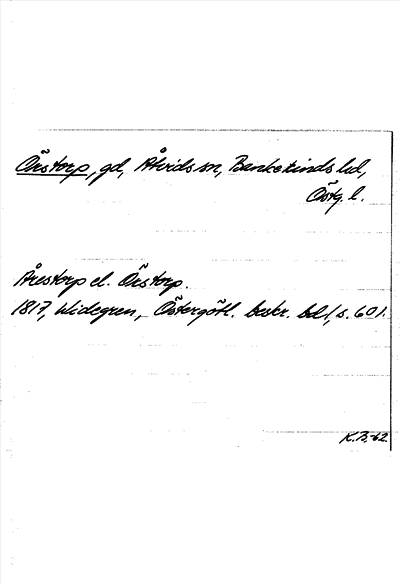 Örstorp, gd, Åtvids sn, Bankekinds hd,
Östg. l.
Årestorp el. Örstorp.
1817, Widegren, Östergötl. beskr. bd 1, s. 601.
K.B.-62.